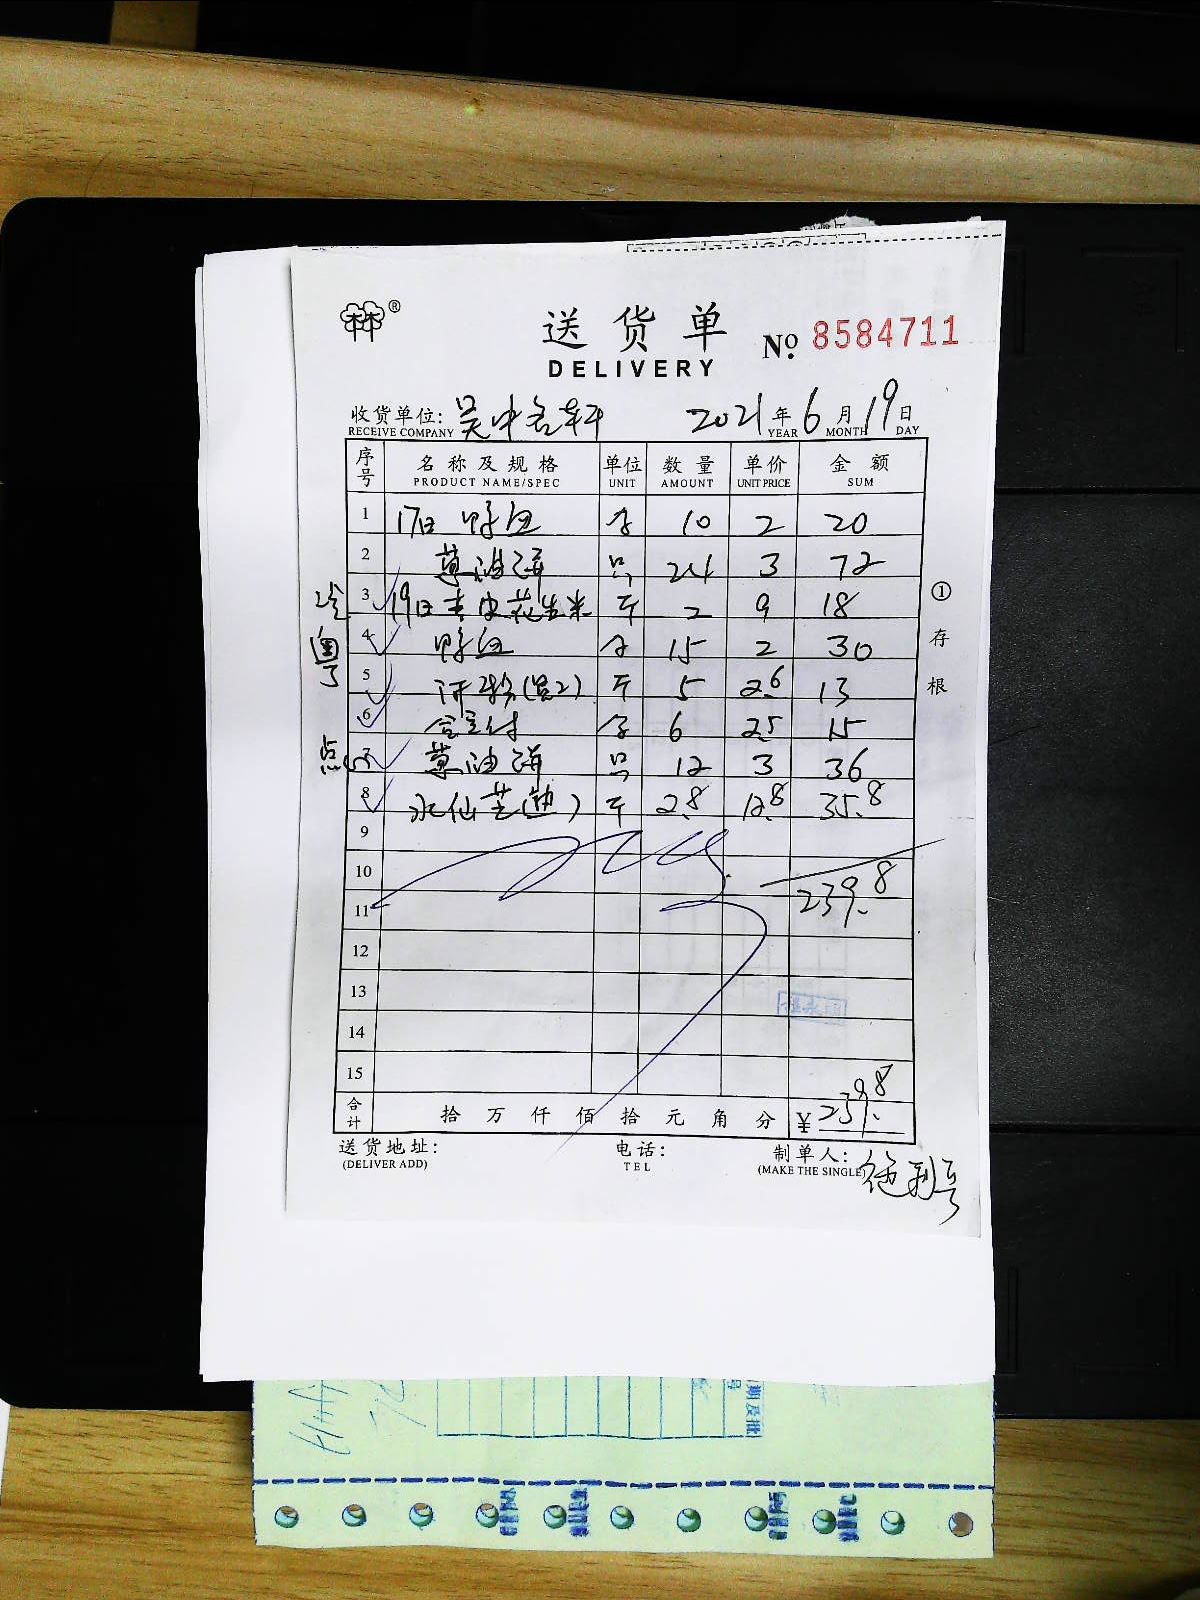 林®
送货单
DELIVERY
No. 8584711
收货单位: 吴中名轩 2021年6月19日
RECEIVE COMPANY YEAR MONTH DAY
序号 名称及规格 单位 数量 单价 金额
PRODUCT NAME/SPEC UNIT AMOUNT UNIT PRICE SUM
1 17日 鸭血 10 2 20
2 葱油饼 只 24 3 72
3 19日去皮花生米 斤 2 9 18
4 鸭血 15 2 30
5 斤 5 2.6 13
6 6 2.5 15
7 葱油饼 只 12 3 36
8 水仙芝 斤 2.8 12.8 35.8
9
10 239.8
11
12
13
14
15
合计 拾万仟佰拾元角分 ¥239.8
①存根
粤
点心
送货地址: 电话: 制单人:
(DELIVER ADD) TEL (MAKE THE SINGLE)